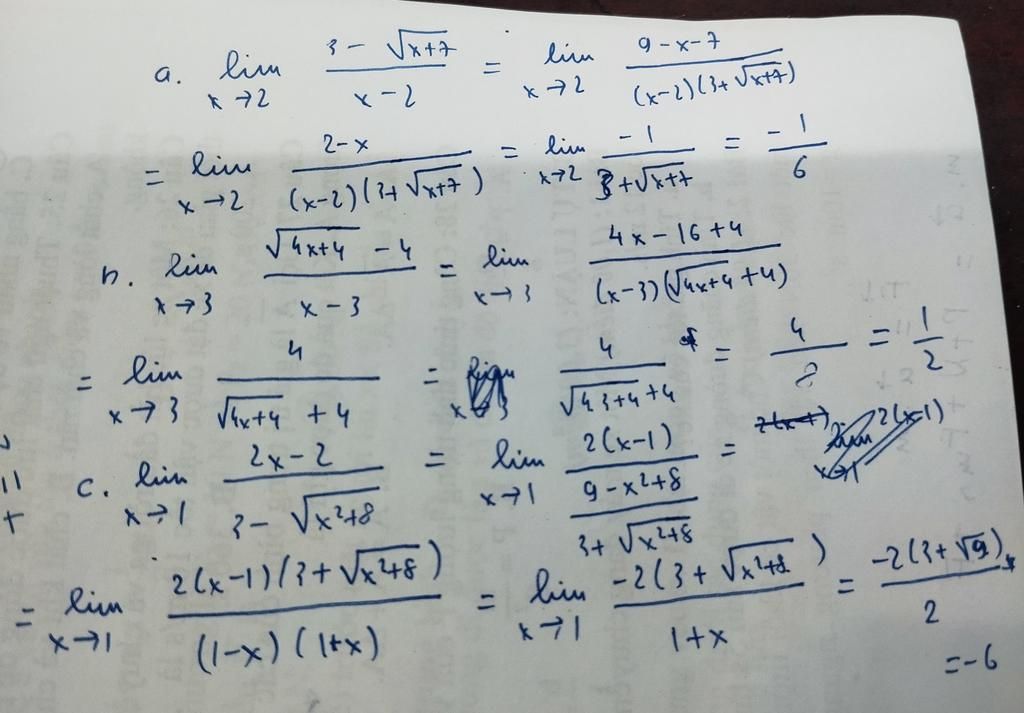 a. lim x→2 (3 - √(x+7))/(x-2) = lim x→2 (9-x-7)/((x-2)(3+√(x+7)))
= lim x→2 (2-x)/((x-2)(3+√(x+7))) = lim x→2 (-1)/(3+√(x+7)) = -1/6
b. lim x→3 (√(4x+4) - 4)/(x-3) = lim x→3 (4x-16+4)/((x-3)(√(4x+4)+4))
= lim x→3 4/(√(4x+4)+4) = 4/(√(4.3+4)+4) = 4/8 = 1/2
c. lim x→1 (2x-2)/(3-√(x²+8)) = lim x→1 2(x-1)/((9-x²+8)/(3+√(x²+8))) =
= lim x→1 2(x-1)(3+√(x²+8))/((1-x)(1+x)) = lim x→1 -2(3+√(x²+8))/(1+x) = -2(3+√9)/2
=-6